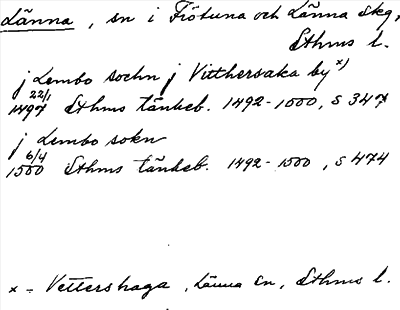 Länna, sn i Frötuna och Länna skg,
Sthms l.
j Lembo sochn j Vitthersaka by x)
22/1 1497 Sthms tänkeb. 1492-1500, s 347
j Lembo sokn
6/4 1500 Sthms tänkeb. 1492-1500, s 474
x = Vettershaga, Länna sn, Sthms l.